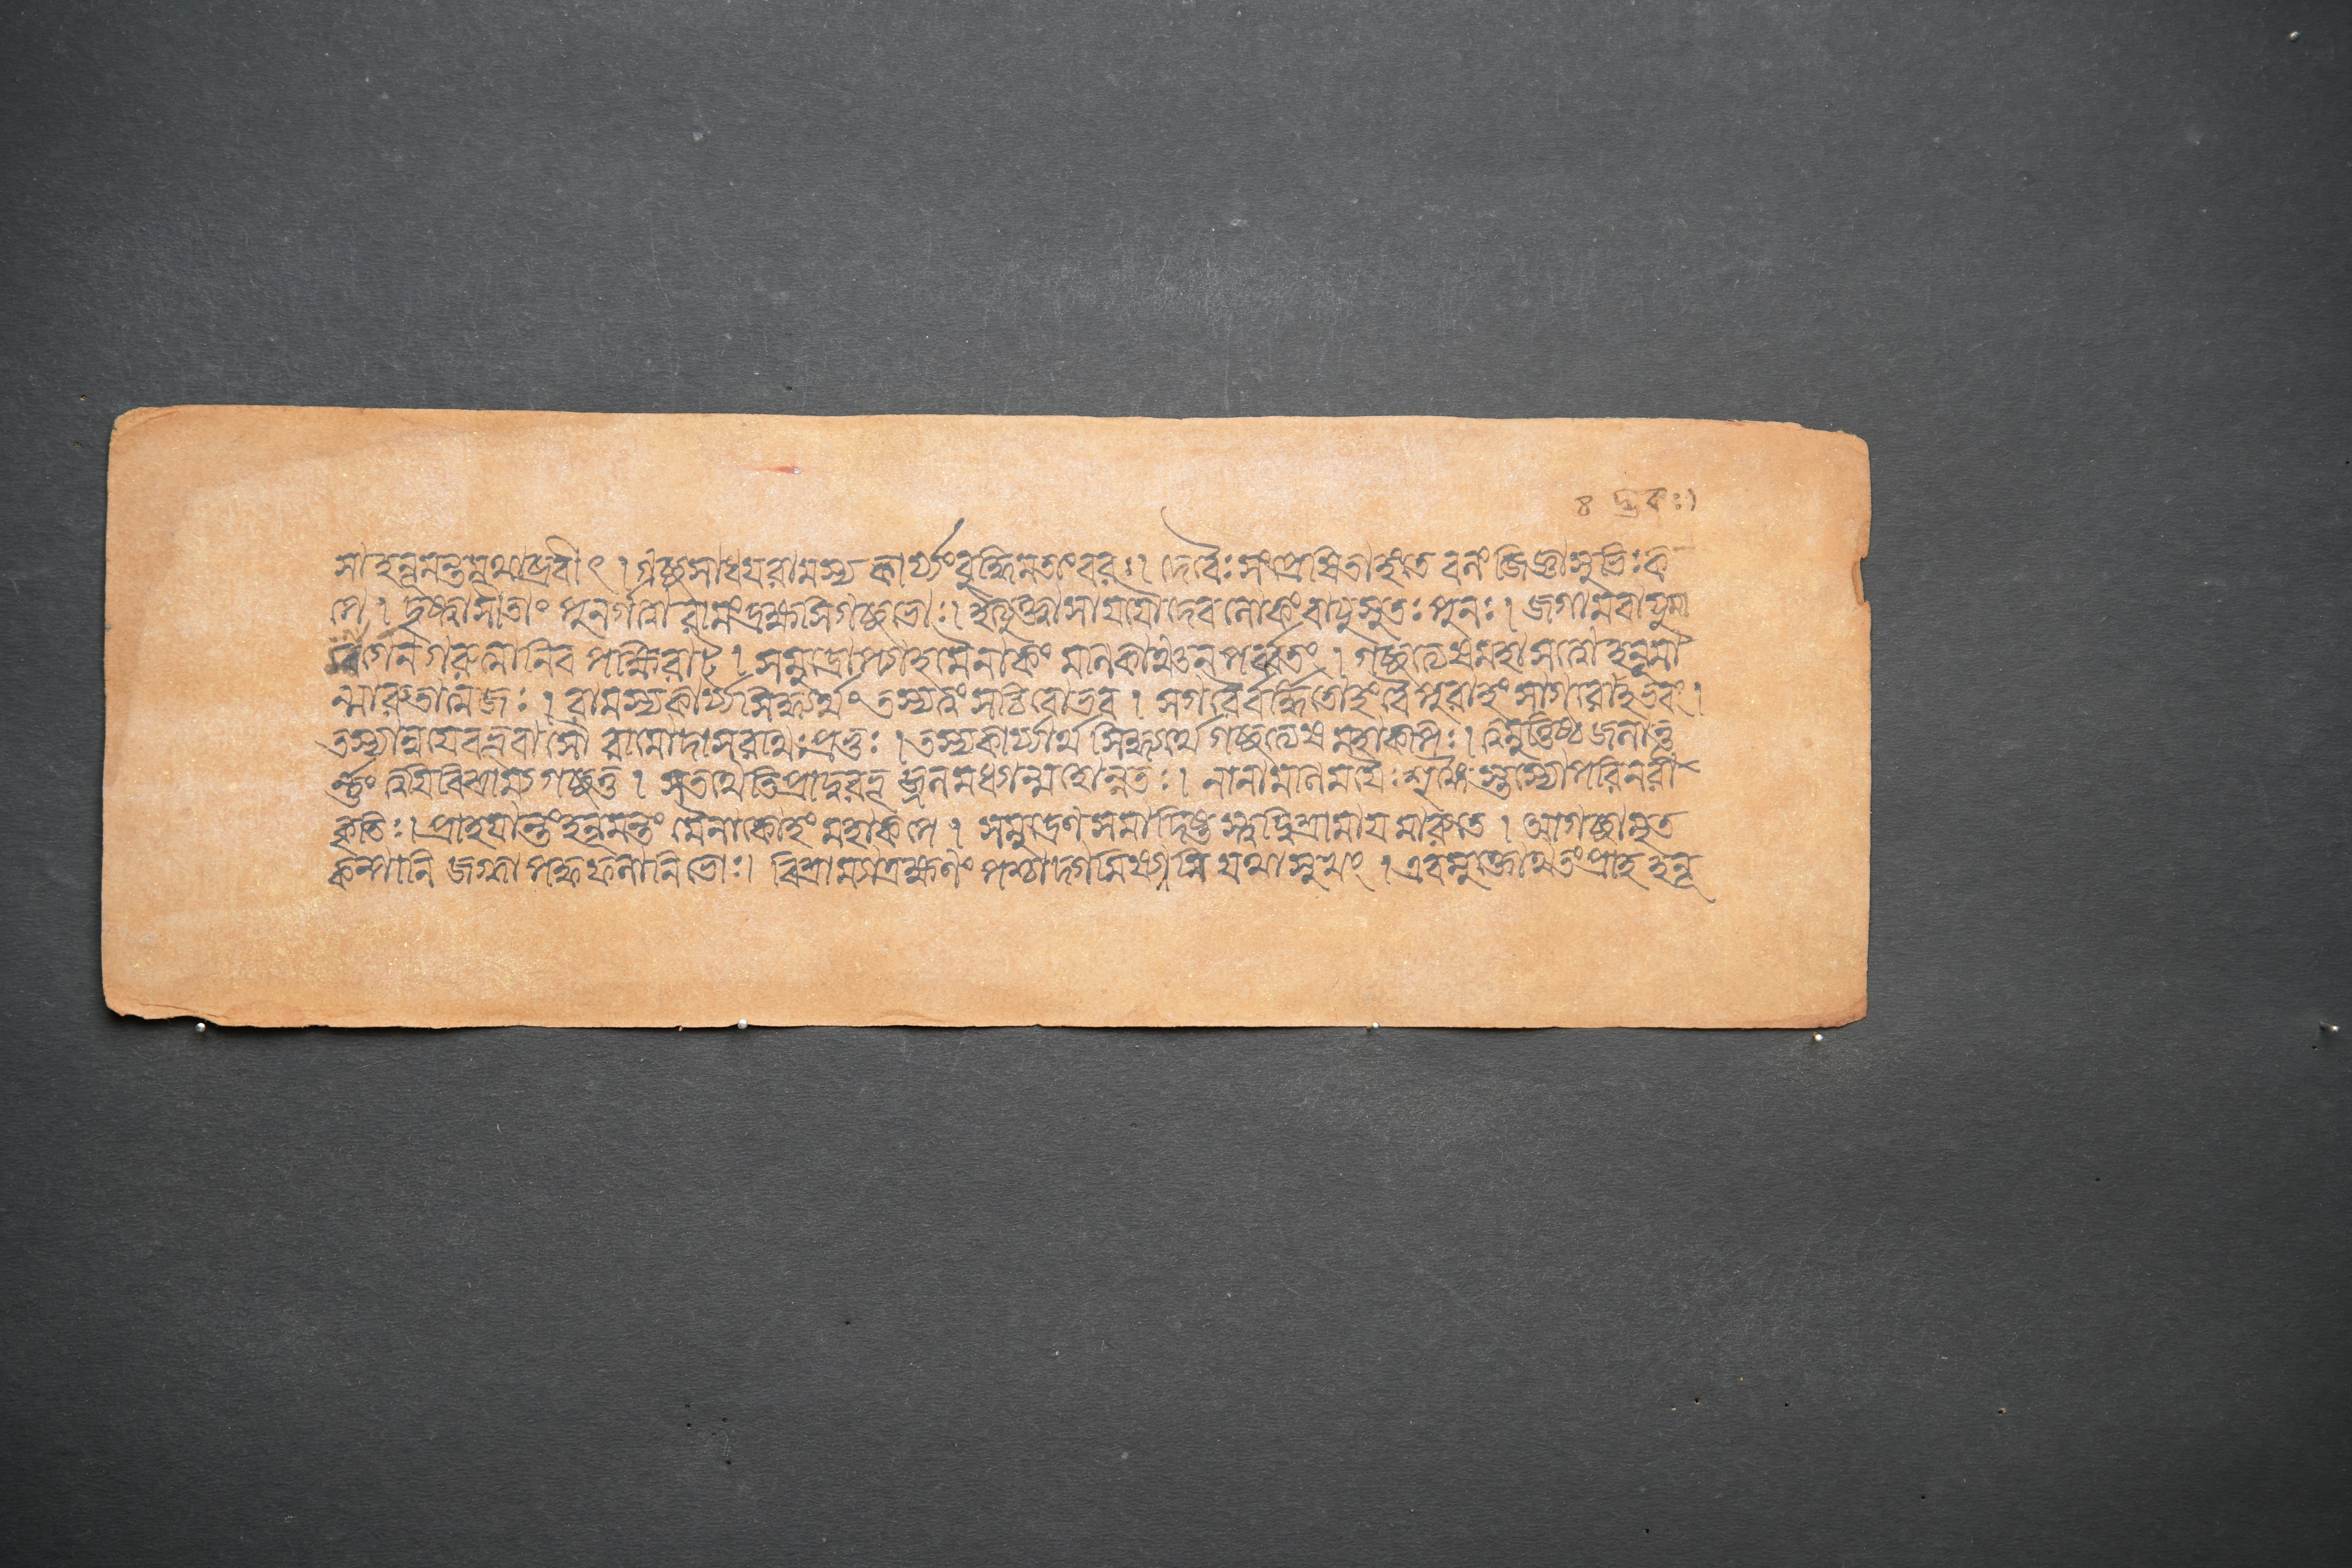 ৪ দ্রকঃ।
সাহনূমন্তমথাব্রবীৎ । গচ্ছ সাধয রামস্য কার্য্যং বুদ্ধিমতাং বরঃ। দেবৈঃ সংপ্রেষিতাহং তে বলং জিজ্ঞাসুভিঃ ক
পে । দৃষ্ট্বা সীতাং পুনর্গত্বা রামং দ্রক্ষ্যসি গচ্ছ ভোঃ। ইত্যুক্ত্বা সা যযৌ দেবলোকং বাযুসুতঃ পুনঃ । জগাম বাযুমা
র্গেন গরুত্মানিব পক্ষিরাট্ । সমুদ্রোপ্যাহ মৈনাকং মানিকাঞ্চনপর্ব্বতং । গচ্ছত্যেষ মহাসত্বো হনূমা
ন্মারুতাত্মজঃ । রামস্য কার্য্যসিদ্ধ্যর্থং তস্য ত্বং সচিবো ভব । সগরৈর্বর্দ্ধিতোহং বৈ পুরাহং সাগরোভবং ।
তস্যান্বযে বভূবাসৌ রামো দাসরথিঃ প্রভুঃ । তস্য কার্য্যার্থসিদ্ধ্যর্থং গচ্ছত্যেষ মহাকপিঃ। ত্বমুত্তিষ্ঠ জলাত্তূ
র্ণ্ণং ত্বযি বিশ্রাম্য গচ্ছতু । স তথেতি প্রাদুরভূজ্জলমধ্যান্মহোন্নতঃ । নানামানিমযৈঃ শৃঙ্গৈস্তস্যোপরি নরা
কৃতিঃ। প্রাহ যান্তং হনূমন্তং মৈনাকোহং মহাকপে । সমুদ্রেণ সমাদিষ্টস্ত্বদ্বিশ্রামায মারুতে । আগচ্ছামৃত
কল্পানি জগ্ধ্বা পক্বফলানি ভোঃ। বিশ্রাম্যাত্র ক্ষণং পশ্চাদ্গমিষ্যসি যথাসুখং । এবমুক্তোথ তং প্রাহ হনূ